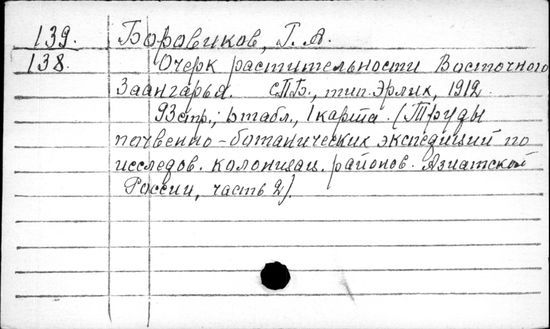 139. Боровиков, Г. А.
138. Очерк растительности Восточного
Заангарья. С.П.Б., тип. Эрлих, 1912.
93 стр.; табл., 1 карта. (Труды
почвенно-ботанических экспедиций по
исследов. колонизац. районов. Азиатской
России, часть 2).